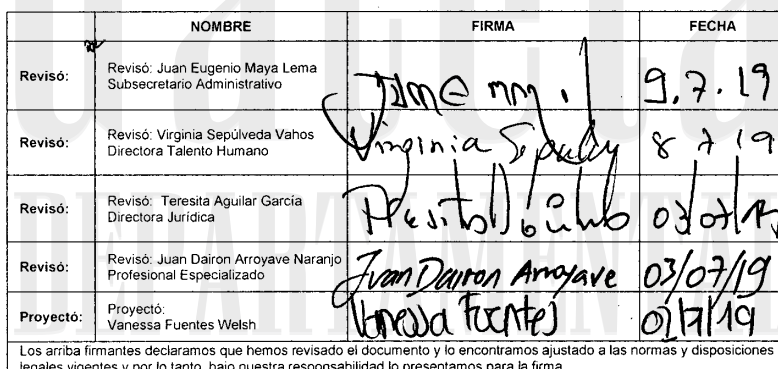 NOMBRE FIRMA FECHA
Revisó: Revisó: Juan Eugenio Maya Lema
Subsecretario Administrativo 9.7.19
Revisó: Revisó: Virginia Sepúlveda Vahos
Directora Talento Humano Virginia 8 7 19
Revisó: Revisó: Teresita Aguilar García
Directora Jurídica 03/07/19
Revisó: Revisó: Juan Dairon Arroyave Naranjo
Profesional Especializado Juan Dairon Arroyave 03/07/19
Proyectó: Proyectó:
Vanessa Fuentes Welsh Vanessa Fuentes 02/7/19
Los arriba firmantes declaramos que hemos revisado el documento y lo encontramos ajustado a las normas y disposiciones
legales vigentes y por lo tanto, bajo nuestra responsabilidad lo presentamos para la firma.